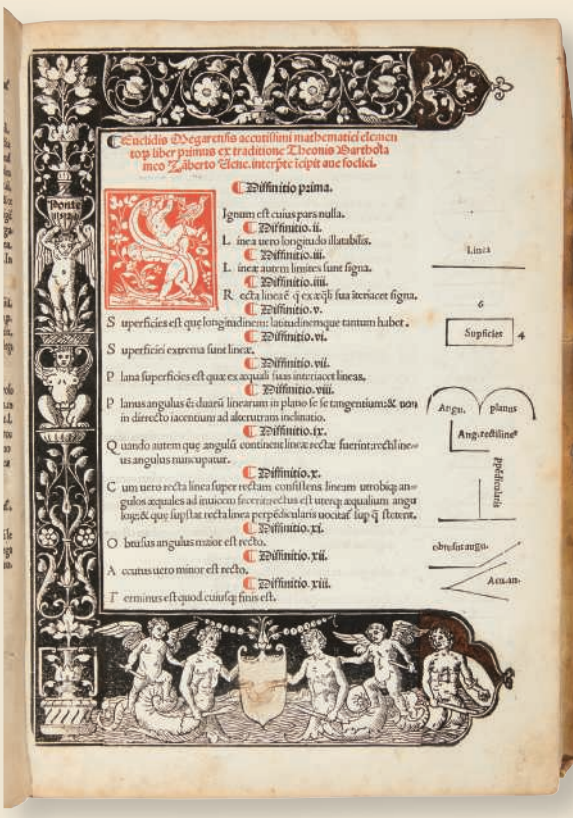 Euclidis Megarensis accutissimi mathematici elemen
toꝝ liber primus ex traditione Theonis Bartholo
meo Zāberto Uene. interp̄te īcipit aue foelici.
Diffinitio prima.
Signum est cuius pars nulla.
Diffinitio. ii.
Linea uero longitudo illatabilis.
Diffinitio. iii.
Lineæ autem limites sunt signa.
Diffinitio. iiii.
Recta linea ē q̄ ex æq̄li sua īteriacet signa.
Diffinitio. v.
Superficies est quę longitudinem: latitudinemque tantum habet.
Diffinitio. vi.
Superficiei extrema sunt lineæ.
Diffinitio. vii.
Plana superficies est quæ ex æquali suas interiacet lineas.
Diffinitio. viii.
Planus angulus ē: duarū linearum in plano se se tangentium: & non
in directo iacentium ad alterutram inclinatio.
Diffinitio. ix.
Quando autem quę angulū continent lineæ rectæ fuerint: rectiline=
us angulus nuncupatur.
Diffinitio. x.
Cum uero recta linea super rectam consistens lineam utrobiq; an=
gulos æquales ad inuicem fecerit: rectus est uterq; æqualium angu
loꝝ: & quę supstat recta linea perpēdicularis uocitaꞇ sup q̄ steterit.
Diffinitio. xi.
Obtusus angulus maior est recto.
Diffinitio. xii.
Accutus uero minor est recto.
Diffinitio. xiii.
Terminus est quod cuiusq; finis est.
Linea
6
Supficies 4
Angu. planus
Ang. rectiline⁹
ppēdicularis
obtusus angu.
Acu. an.